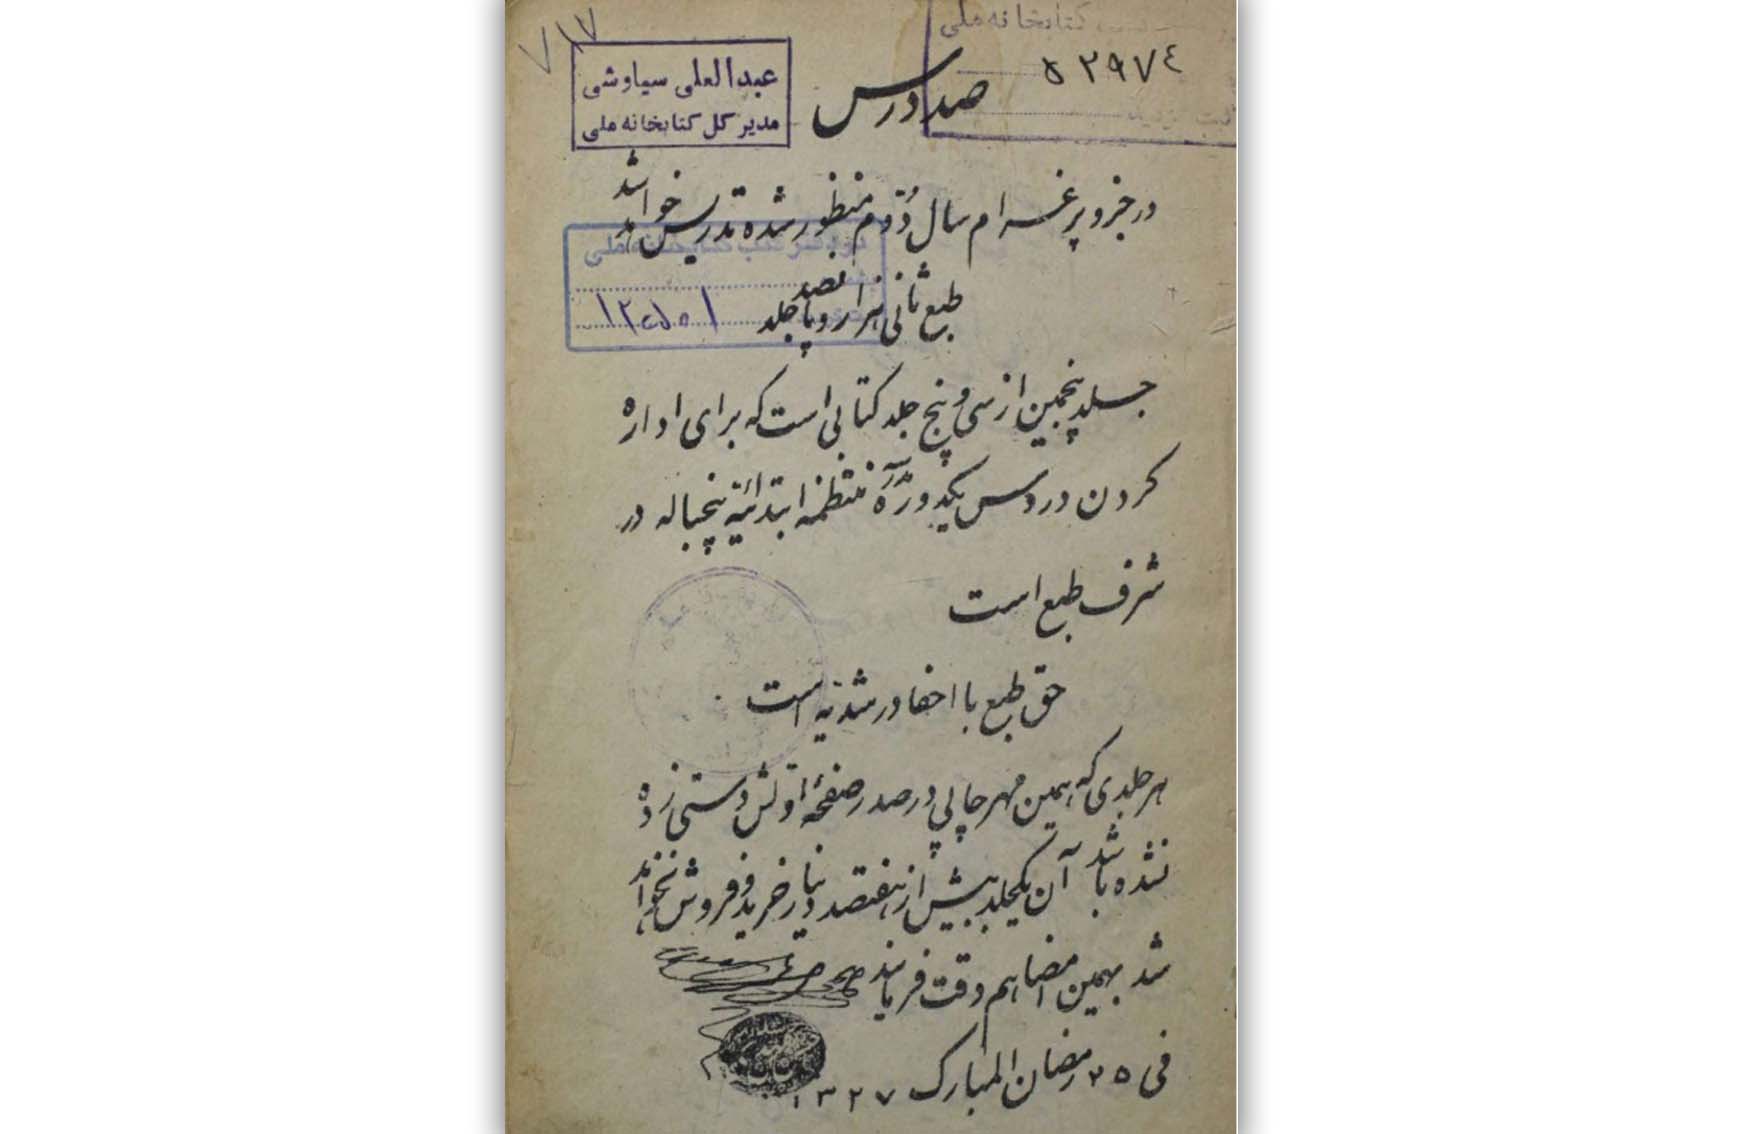 ۷۱۷
کتابخانه ملی
۵۲۹۷۴
عبدالعلی سیاوشی
مدیر کل کتابخانه ملی
صد درس
در جزو پرغرام سال دوّم منظور شده تدریس خواهد شد
دفتر ثبت کتابخانه ملی
طبع ثانی هزار و پانصد جلد
جلد پنجمین از سی و پنج جلد کتابی است که برای اداره
کردن دروس یکدورۀ مدرسه منتظمه ابتدائیه پنجساله در
شرف طبع است
حق طبع با احفاد رشدیه است
هر جلدی که همین مهر چاپی در صدر صفحۀ اولش دستی زده
نشده باشد آن یکجلد بیش از هفتصد دینار خرید و فروش نخواهد
شد بهمین امضا هم دقت فرمایند
فی ۲۵ رمضان المبارک ۱۳۲۷